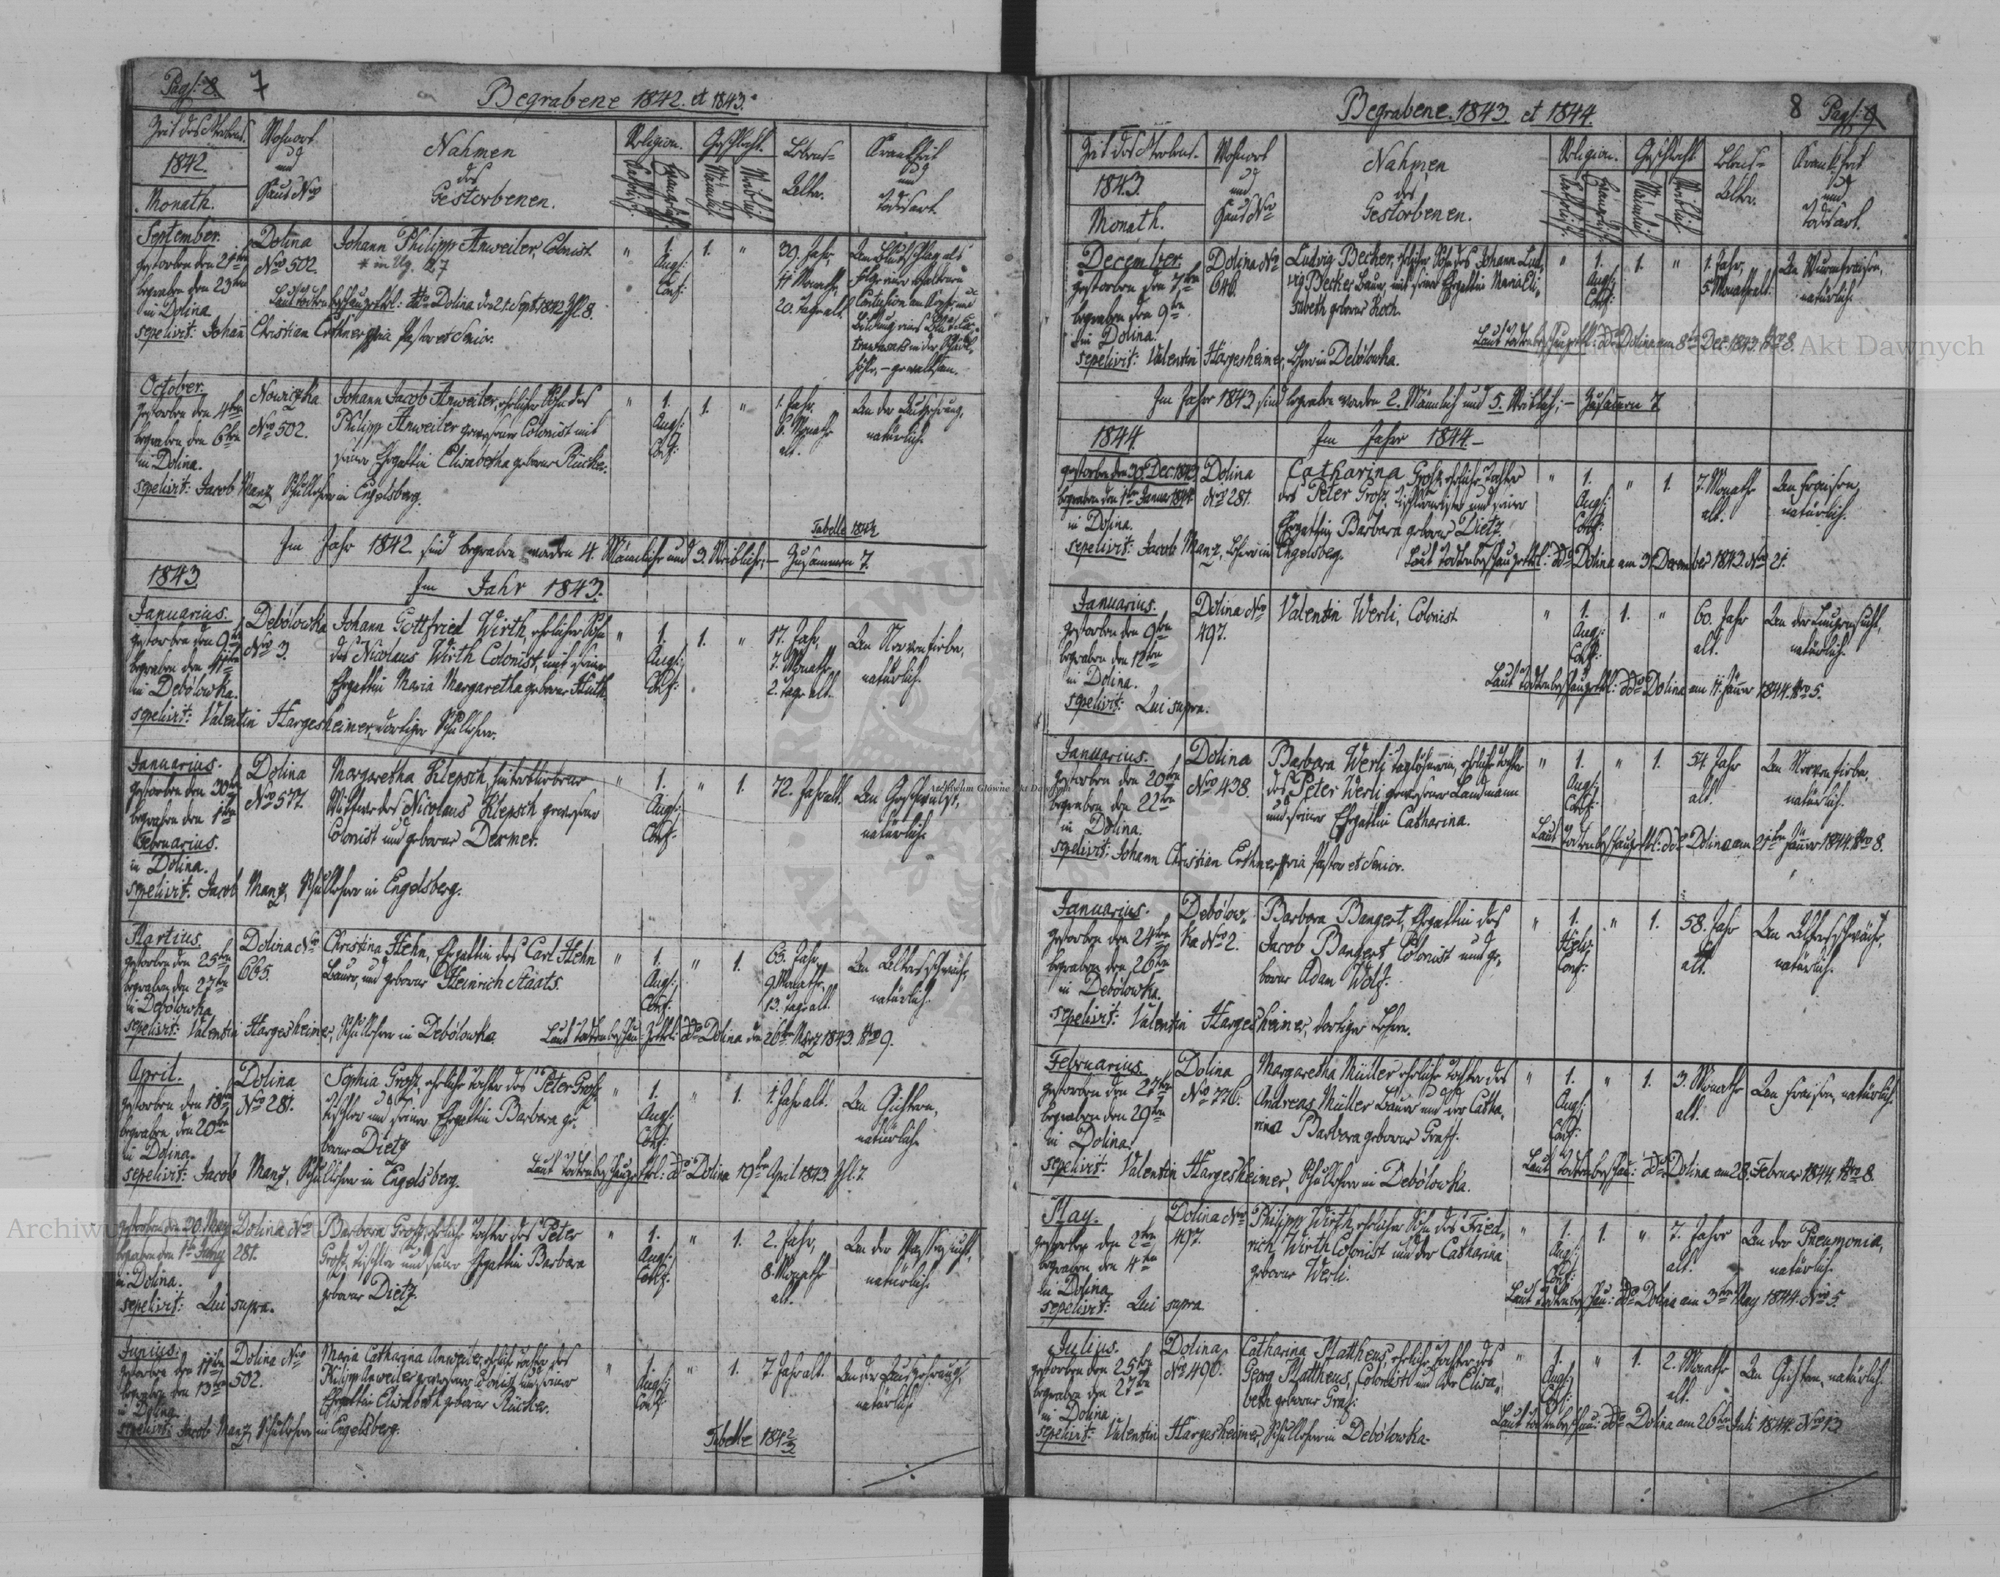 Pag: 8. 7
Begrabene 1842. et 1843.
Zeit des Sterbens.
1842.
Monath.
Wohnort
und
Haus Nro
Nahmen
des
Gestorbenen.
Religion.
Geschlecht.
Lebens-
Alter.
Krankheit
und
Todesart.
September.
gestorben den 21ten
begraben den 23ten
in Dolina.
Dolina
Nro 502.
Johann Philipp Anweiler, Colonist
1.
Augs:
Conf:
1.
39. Jahr,
11 Monath,
20. Tage alt.
sepelivit: Johann Christian Erthner pria Pastor et Senior.
October.
gestorben den 4ten
begraben den 6ten
in Dolina.
Nowiczka
Nro 502.
Johann Jacob Anweiler, ehelicher Sohn des
Philipp Anweiler gewesener Colonist mit
seiner Ehegattin Elisabetha geborne Rücker.
1.
Augs:
Conf:
1.
1. Jahr,
6. Monath
alt.
An der Auszehrung,
natürlich
sepelivit: Jacob Manz, Schullehrer in Engelsberg.
Tabelle 1842
Im Jahr 1842 sind begraben worden 4. Männliche und 3. Weibliche; — Zusammen 7.
1843.
Im Jahr 1843.
Januarius.
gestorben den 9ten
begraben den 11ten
in Debólowka.
Debólowka
Nro 3.
Johann Gottfried Wirth, ehelicher Sohn
des Nicolaus Wirth Colonist, mit seiner
Ehegattin Maria Margaretha geborne Huth.
1.
Augs:
Conf:
1.
17. Jahr,
7. Monath,
2. Tage alt.
An Nervenfieber,
natürlich.
sepelivit: Valentin Hargesheimer, dortiger Schullehrer.
Januarius.
gestorben den 30ten
begraben den 1ten
Februarius.
in Dolina.
Dolina
Nro 577.
Margaretha Klepsch, hinterbliebene
Wittwe des Nicolaus Klepsch gewesener
Colonist und geborne Dexmer.
1.
Augs:
Conf:
1.
72. Jahr alt.
An Geschwulst,
natürlich.
sepelivit: Jacob Manz, Schullehrer in Engelsberg.
Martius.
gestorben den 25ten
begraben den 27ten
in Debólowka.
Dolina Nro
665.
Christina Hehn, Ehegattin des Carl Hehn
Bauer, und geborne Heinrich Staats.
1.
Augs:
Conf:
1.
63. Jahr,
9 Monath,
13. Tage alt.
An Altersschwäche,
natürlich.
sepelivit: Valentin Hargesheimer, Schullehrer in Debólowka.
Laut Todtenbeschau-Zettel: ddo Dolina den 26ten März 1843. Nro 9.
April.
gestorben den 18ten
begraben den 20ten
in Dolina.
Dolina
Nro 281.
Sophia Groß, eheliche Tochter des Peter Groß,
Tischler und seiner Ehegattin Barbara ge-
borne Dietz
1.
Augs:
Conf:
1.
1. Jahr alt.
An Gichtern,
natürlich
sepelivit: Jacob Manz, Schullehrer in Engelsberg.
Laut Todtenbeschauzettel: ddo Dolina 19ten April 1843.
gestorben den 30. May
begraben den 1ten Juny
in Dolina.
Dolina Nro
281.
Barbara Groß, eheliche Tochter des Peter
Groß, Tischler und seiner Ehegattin Barbara
geborne Dietz.
1.
Augs:
Conf:
1.
2. Jahr,
8. Monath
alt.
An der Wassersucht,
natürlich.
sepelivit: Qui supra.
Junius.
gestorben den 11ten
begraben den 13ten
in Dolina
Dolina Nro
502.
Maria Catharina Anweiler, eheliche Tochter des
Philipp Anweiler gewesener Colonist und seiner
Ehegattin Elisabeth geborne Rücker.
1.
Augs:
Conf:
1.
7 Jahr alt.
An der Auszehrung,
natürlich
sepelivit: Jacob Manz, Schullehrer in Engelsberg.
Tabelle 1842/3
Begrabene 1843. et 1844.
8 Pag: 9
Zeit des Sterbens.
1843.
Monath.
Wohnort
und
Haus Nro
Nahmen
des
Gestorbenen.
Religion.
Geschlecht
Lebens-
Alter.
Krankheit
und
Todesart.
December.
gestorben den 7ten
begraben den 9ten
in Dolina.
Dolina Nro
646.
Ludwig Becker, ehelicher Sohn des Johann Lud-
wig Becker Bauer, mit seiner Ehegattin Maria Eli-
sabeth geborne Koch.
1.
Augs:
Conf:
1.
1. Jahr,
5. Monath alt.
natürlich.
Laut Todtenbeschauzettel: ddo Dolina am 8ten Dec. 1843. Nro 8.
sepelivit: Valentin Hargesheimer, Lehrer in Debólowka.
Im Jahr 1843 sind begraben worden 2. Männlich und 5. Weiblich; — Zusamen 7.
1844
Im Jahr 1844.—
gestorben den 30. Dec. 1843
begraben den 1ten Januar 1844.
in Dolina.
Dolina
Nro 281.
Catharina Groß, eheliche Tochter
des Peter Groß, Tischlermeister und seiner
Ehegattin Barbara geborne Dietz.
1.
Augs:
Conf:
1.
7. Monath
alt.
An Fraisen,
natürlich.
sepelivit: Jacob Manz, Lehrer in Engelsberg.
Laut Todtenbeschauzettel: ddo Dolina am 31 December 1843. Nro 21.
Januarius.
gestorben den 9ten
begraben den 12ten
in Dolina.
Dolina Nro
497.
Valentin Werli, Colonist
1.
Augs:
Conf:
1.
60. Jahr
alt.
An der Lungensucht,
natürlich.
Laut Todtenbeschauzettel: ddo Dolina am 11. Jänner 1844. Nro 5.
sepelivit: Qui supra.
Januarius.
gestorben den 20ten
begraben den 22ten
in Dolina.
Dolina
Nro 438.
Barbara Werli Taglöhnerin, eheliche Tochter
des Peter Werli gewesener Landmann
und seiner Ehegattin Catharina.
1.
Augs:
Conf:
1.
54. Jahr
alt.
An Nervenfieber,
natürlich.
Laut Todtenbeschauzettel: ddo Dolina am 21ten Jänner 1844. Nro 8.
sepelivit: Johann Christian Erthner pria Pastor et Senior.
Januarius.
gestorben den 24ten
begraben den 26ten
in Debólowka.
Debólow-
ka Nro 2.
Barbara Bangert, Ehegattin des
Jacob Bangert Colonist und ge-
borne Adam Wolf.
1.
Helv:
Conf:
1.
58. Jahr
alt.
An Altersschwäche,
natürlich.
sepelivit: Valentin Hargesheimer, dortiger Lehrer.
Februarius.
gestorben den 27ten
begraben den 29ten
in Dolina.
Dolina
Nro 776.
Margaretha Müller eheliche Tochter des
Andreas Müller Bauer und der Catha-
rina Barbara geborne Graff.
1.
Augs:
Conf:
1.
3. Monath
alt.
An Fraisen, natürlich.
Laut Todtenbeschau: ddo Dolina am 28. Februar 1844. Nro 8.
sepelivit: Valentin Hargesheimer, Schullehrer in Debólowka.
May.
gestorben den 2ten
begraben den 4ten
in Dolina.
Dolina Nro
497.
Philipp Wirth, ehelicher Sohn des Fried-
rich Wirth Colonist und der Catharina
geborne Werli.
1.
Augs:
Conf:
1.
7. Jahre
alt.
An der Pneumonia,
natürlich.
Laut Todtenbeschau: ddo Dolina am 3ten May 1844. Nro 5.
sepelivit: Qui supra
Julius.
gestorben den 25ten
begraben den 27ten
in Dolina
Dolina
Nro 490.
Catharina Mattheus, eheliche Tochter des
Georg Mattheus, Colonist und der Elisa-
beth geborne Graf.
1.
Augs:
Conf:
1.
2. Monathe
alt.
An Gichtern, natürlich.
Laut Todtenbeschau: ddo Dolina am 26ten Juli 1844. Nro 13.
sepelivit: Valentin Hargesheimer, Schullehrer in Debólowka.
Archiwum Główne Akt Dawnych